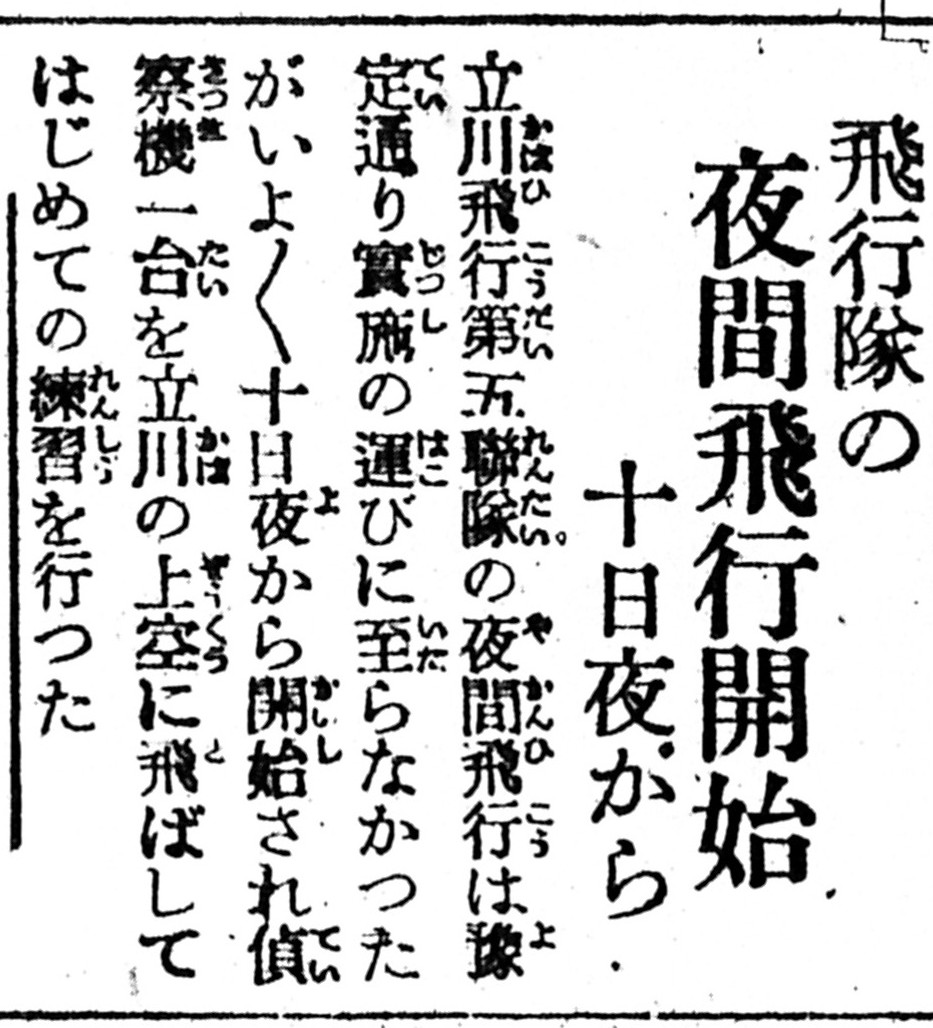 飛行隊の
夜間飛行開始
十日夜から
立川飛行第五聯隊の夜間飛行は豫
定通り實施の運びに至らなかつた
がいよ〱十日夜から開始され偵
察機一台を立川の上空に飛ばして
はじめての練習を行つた